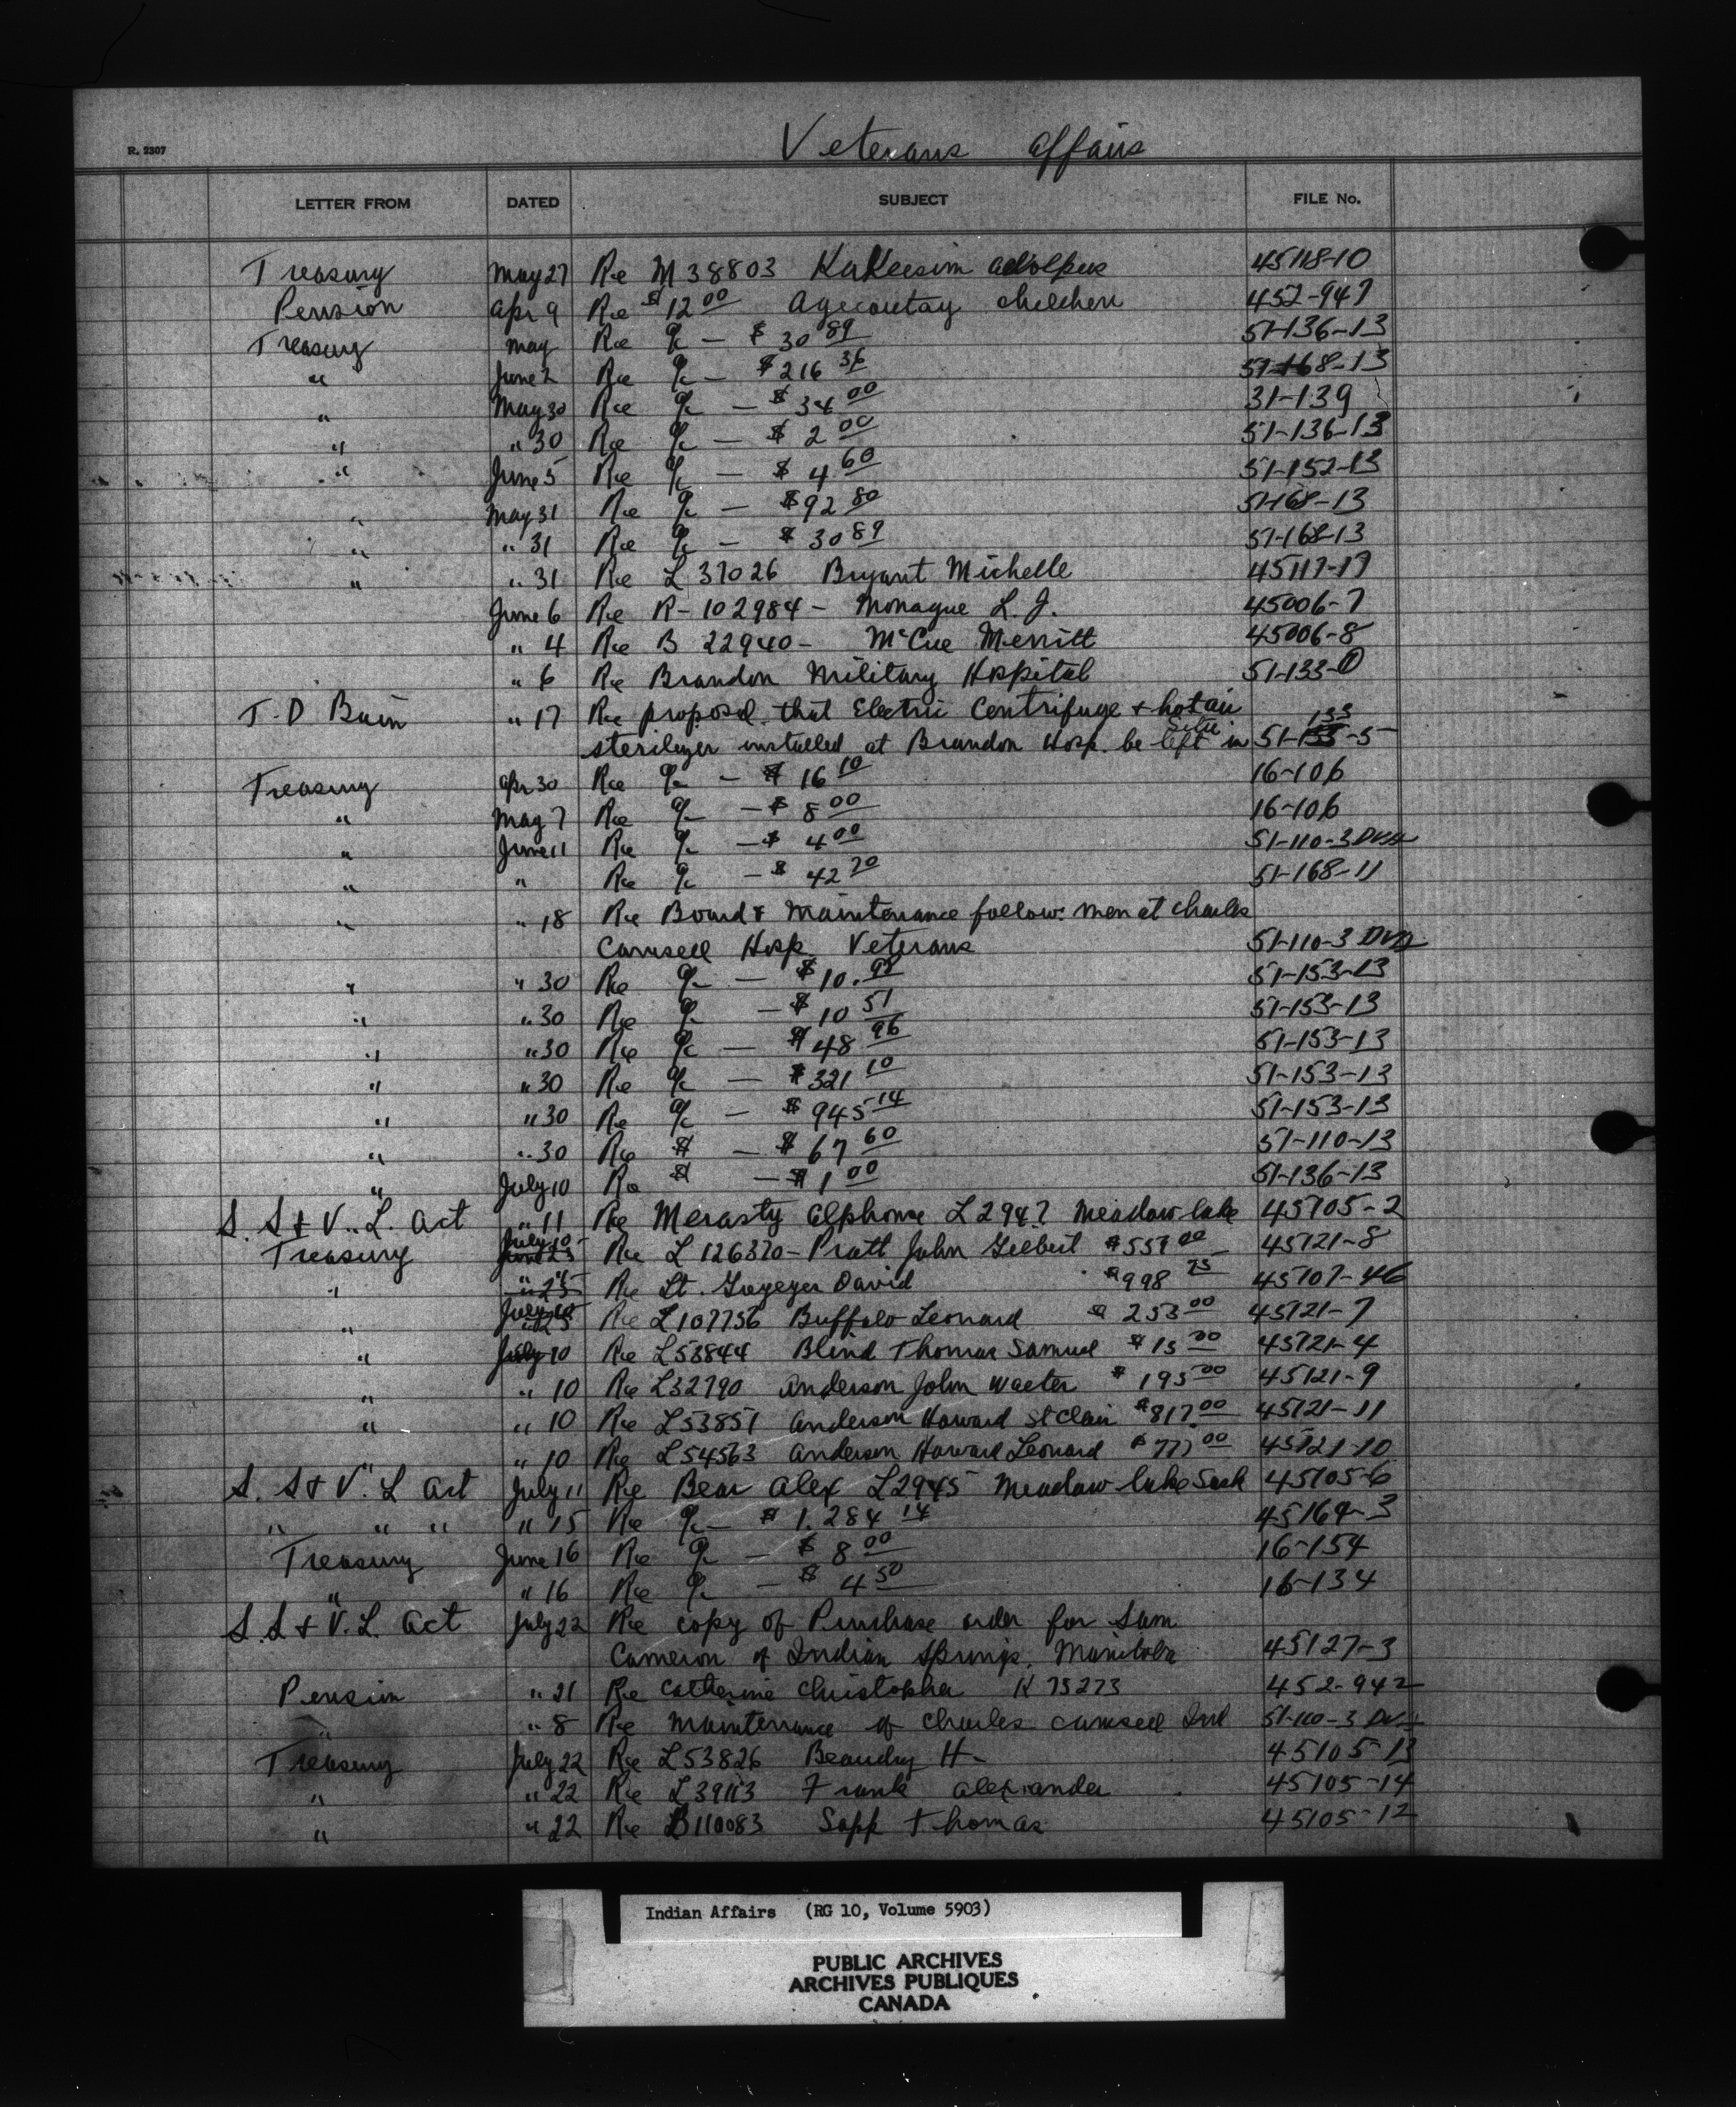 Veterans Affairs
R. 2307
LETTER FROM DATED SUBJECT FILE No.
Treasury May 27 Re M 38803 KaKeesim Adolphus 45118-10
Pension Apr 9 Re $12 00 Agecoutay children 452-947
Treasury May Re a/c — $ 30 89 51-136-13
" June 2 Re a/c — $216 36 51-168-13
" May 30 Re a/c — $ 34 00 31-139
" " 30 Re a/c — $ 2 00 51-136-13
" June 5 Re a/c — $ 4 60 51-152-13
" May 31 Re a/c — $92 80 51-168-13
" " 31 Re a/c — $ 30 89 51-168-13
" " 31 Re L 37026 Bryant Michelle 45117-17
June 6 Re R-102984 - Monague L. J. 45006-7
" 4 Re B 22940 - McCue Merritt 45006-8
" 6 Re Brandon Military Hospital 51-133-0
T. D Bain " 17 Re proposal that Electric Centrifuge + hot air
sterilizer installed at Brandon Hosp. be left in 51-133-5
Treasury Apr 30 Re a/c — $ 16 10 16-106
" May 7 Re a/c — $ 8 00 16-106
" June 11 Re a/c — $ 4 00 51-110-3 DVA
" " Re a/c — $ 42 20 51-168-11
" " 18 Re Board & Maintenance follow. men at Charles
Camsell Hosp. Veterans 51-110-3 DVA
" " 30 Re a/c — $10. 51-153-13
" " 30 Re a/c — $ 10 51 51-153-13
" " 30 Re a/c — $ 48 96 51-153-13
" " 30 Re a/c — $321 10 51-153-13
" " 30 Re a/c — $ 945 14 51-153-13
" " 30 Re $ — $ 67 60 51-110-13
" July 10 Re $ — $ 1 00 51-136-13
S. S + V. L. Act " 11 Re Merasty Alphonse L 294? Meadow lake 45105-2
Treasury July 10 Re L 126320 - Pratt John Gilbert $557 00 45121-8
" " Re Lt. Greyeyes David $998 75 45107-46
" July 10 Re L107756 Buffalo Leonard $ 253 00 45121-7
" July 10 Re L53844 Blind Thomas Samuel $ 15 00 45121-4
" " 10 Re L32790 Anderson John Walter $ 195 00 45121-9
" " 10 Re L53851 Anderson Howard St Clair $817 00 45121-11
" " 10 Re L54563 Anderson Howard Leonard $ 777 00 45121-10
S. S + V. L Act July 11 Re Bear Alex L2945 Meadow lake Sask 45105-6
" " " " 15 Re a/c — $ 1,284 14 45164-3
Treasury June 16 Re a/c — $ 8 00 16-154
" " 16 Re a/c — $ 4 50 16-134
S. S + V. L. Act July 22 Re copy of Purchase order for Sam
Cameron of Indian Springs, Manitoba 45127-3
Pension " 21 Re Catherine Christopher K 75273 452-942
" " 8 Re maintenance of Charles Camsell Ind 51-110-3 DVA
Treasury July 22 Re L53826 Beaudry H- 45105-13
" " 22 Re L39113 Frank Alexander 45105-14
" " 22 Re B110083 Sapp Thomas 45105-12
Indian Affairs (RG 10, Volume 5903)
PUBLIC ARCHIVES
ARCHIVES PUBLIQUES
CANADA